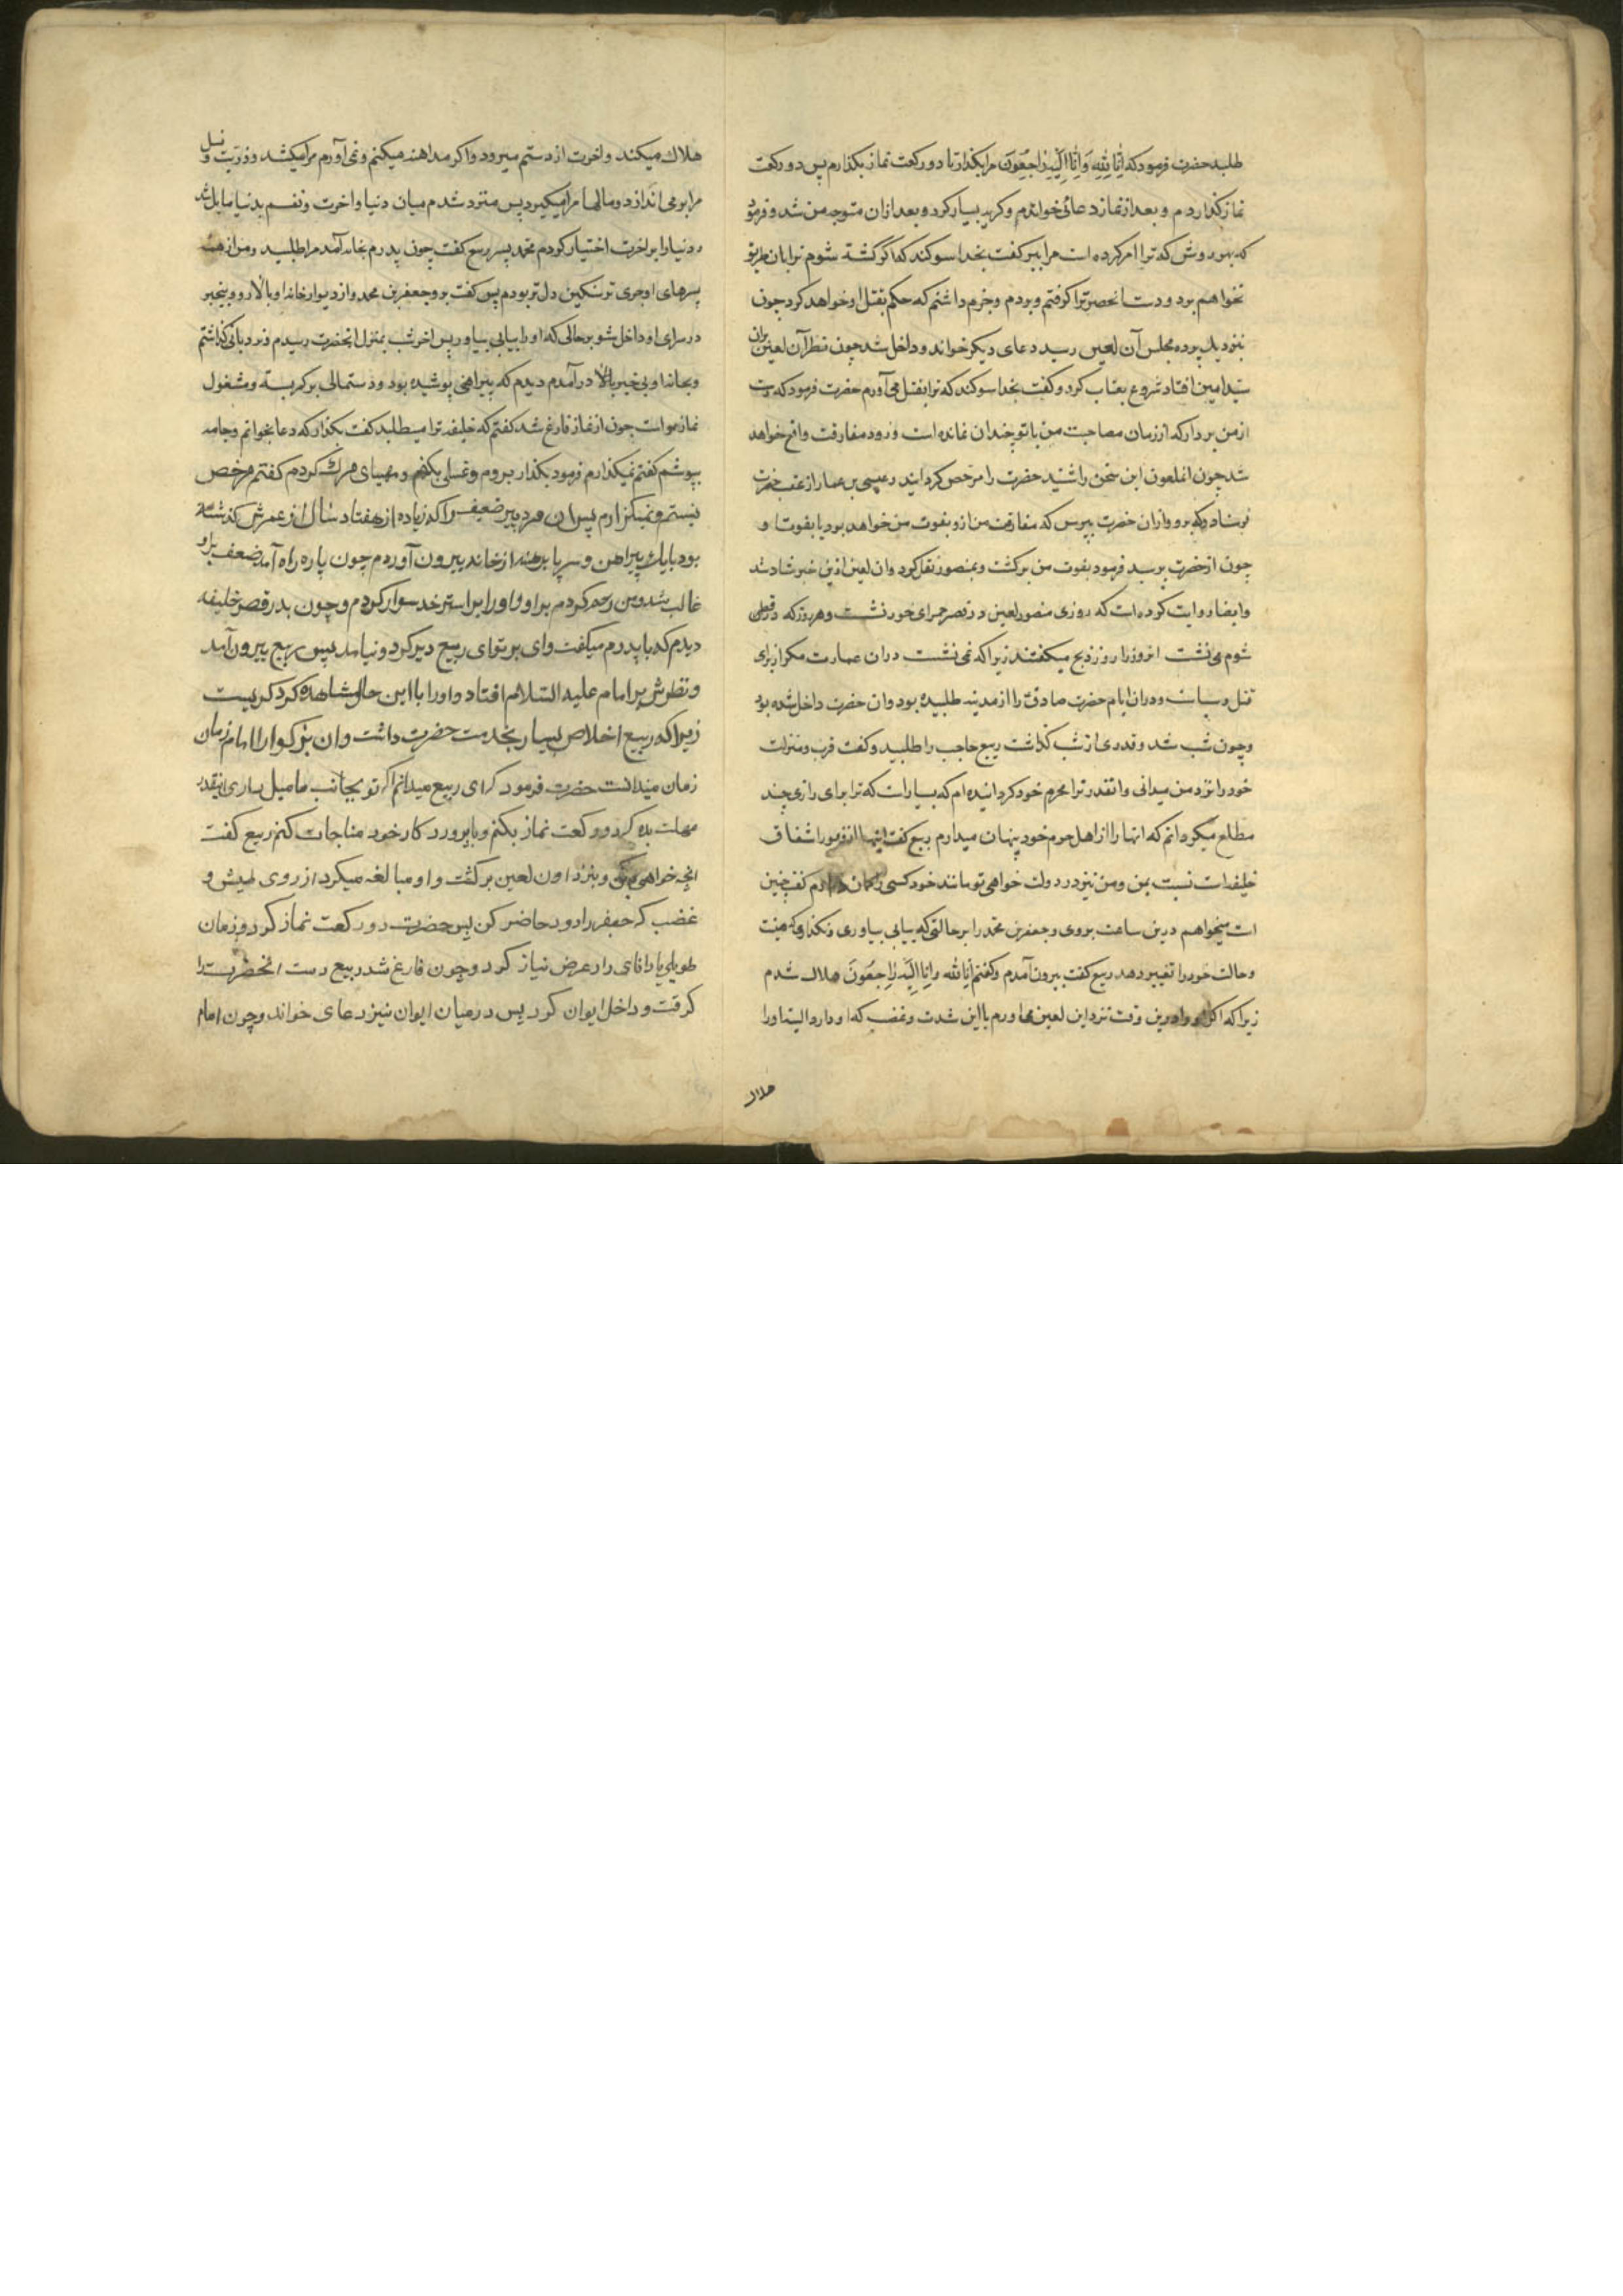 طلبد حضرت فرمود که اِنّا لِلّٰهِ وَاِنّا اِلَیْهِ رٰاجِعُونَ مرا بگذار تا دو رکعت نماز بگذارم پس دو رکعت
نماز گذاردم و بعد از نماز دعائی خواندم و کریه بسیار کرد و بعد از ان متوجه من شد و فرمود
که بهر روش که ترا امر کرده است مرا ببر کفت بخدا سوکند که اکر کشته شوم ترا بان طریق
نخواهم برد و دست انحضرترا کرفتم و بردم و جزم داشتم که حکم بقتل او خواهد کرد چون
بنزدیک پرده مجلس آن لعین رسید دعای دیکر خواند و داخل شد چون نظر آن لعین بران
سید امین افتاد شروع بعتاب کرد و کفت بخدا سوکند که ترا بقتل می آورم حضرت فرمود که دست
از من بردار که از زمان مصاحبت من با تو چندان نمانده است و زود مفارقت واقع خواهد
شد چون انملعون این سخن را شنید حضرت را مرخص کردانید و عیسی بن عمار از عقب حضرت
فرستاد و که برو و از ان حضرت بپرس که مفارقت من از و بفوت من خواهد بود یا بفوت او
چون از حضرت پرسید فرمود بفوت من برکشت و بمنصور نقل کرد و ان لعین ازین خبر شاد شد
و ایضا روایت کرده است که روزی منصور لعین در قصر حمرای خود نشست و هر روزکه در قصر
شوم می نشست انروز را روز ذبح میکفتند زیرا که نمی نشست دران عمارت مکر از برای
قتل و سیاست و دران ایام حضرت صادق را از مدینه طلبیده بود و ان حضرت داخل شده بود
و چون شب شد و قدری از شب کذشت ربیع حاجب را طلبید و کفت قرب و منزلت
خود را نزد من میدانی و انقدر ترا محرم خود کردانیده ام که بسیار است که ترا برای رازی چند
مطلع میکردانم که انها را از اهل حرم خود پنهان میدارم ربیع کفت اینها از وفور اشفاق
خلیفه است نسبت بمن و من نیز در دولت خواهی تو مانند خود کسی کمان ندارم کفت چنین
است میخواهم درین ساعت بروی و جعفر بن محمد را بر حالتی که بیابی بیاوری و نکذاری که هیئت
و حالت خود را تغییر دهد ربیع کفت بیرون آمدم و کفتم اِنّا لله وانا اِلَیْه راجِعُونَ هلاک شدم
زیرا که اکر او را درین وقت نزد این لعین بیاورم با این شدت و غضب که او دارد البته او را
هلاک
هلاک میکند و اخرت از دستم میرود و اکر مداهنه میکنم و نمی آورم مرا میکشد و ذریت و نسل
مرا بر می اندازد و مالها مرا میکیرد پس متردد شدم میان دنیا و اخرت و نفسم بدنیا مایل شد
و دنیا را بر اخرت اختیار کردم محمد پسر ربیع کفت چون پدرم بخانه آمد مرا طلبید و من از همه
پسرهای او جری تر و سنکین دل تر بودم پس کفت برو جعفر بن محمد و از دیوار خانه او بالا رو و بیخبر
در سرای او داخل شو بر حالی که او را بیابی بیاور پس اخر شب بمنزل انحضرت رسیدم و نردبانی کذاشتم
و بخانه او بی خبر بالا در آمدم دیدم که پیراهنی پوشیده بود و دستمالی بر کمر بسته و مشغول
نماز است چون از نماز فارغ شد کفتم که خلیفه ترا میطلبد کفت بکذار که دعا بخوانم و جامه
بپوشم کفتم نمیکذارم فرمود بکذار بروم و غسلی بکنم و مهیای مرک کردم کفتم مرخص
نیستم و نمیکزارم پس ان مرد پیر ضعیف را که زیاده از هفتاد سال از عمرش کذشته
بود با یک پیراهن و سر پا برهنه از خانه بیرون آوردم چون پاره راه آمد ضعف بر او
غالب شد و من رحم کردم بر او و او را بر استر خود سوار کردم و چون بدر قصر خلیفه
دیدم که با پدرم میکفت وای بر تو ای ربیع دیر کرد و نیامد پس ربیع بیرون آمد
و نظرش بر امام علیه السّلام افتاد و او را با این حال مشاهده کرد کریست
زیرا که ربیع اخلاص بسیار بخدمت حضرت داشت و ان بزرکوار را امام زمان
زمان میدانست حضرت فرمود که ای ربیع میدانم که تو بجانب ما میل داری اینقدر
مهلت بده که دو رکعت نماز بکنم و با پرورد کار خود مناجات کنم ربیع کفت
انچه خواهی بکن و بنزد اون لعین برکشت و او مبالغه میکرد از روی طیش و
غضب که جعفر را زود حاضر کن پس حضرت دو رکعت نماز کرد و زمان
طویلی با دانای راز عرض نیاز کرد و چون فارغ شد ربیع دست انحضرت را
کرفت و داخل ایوان کرد پس در میان ایوان نیز دعای خواند و چون امام